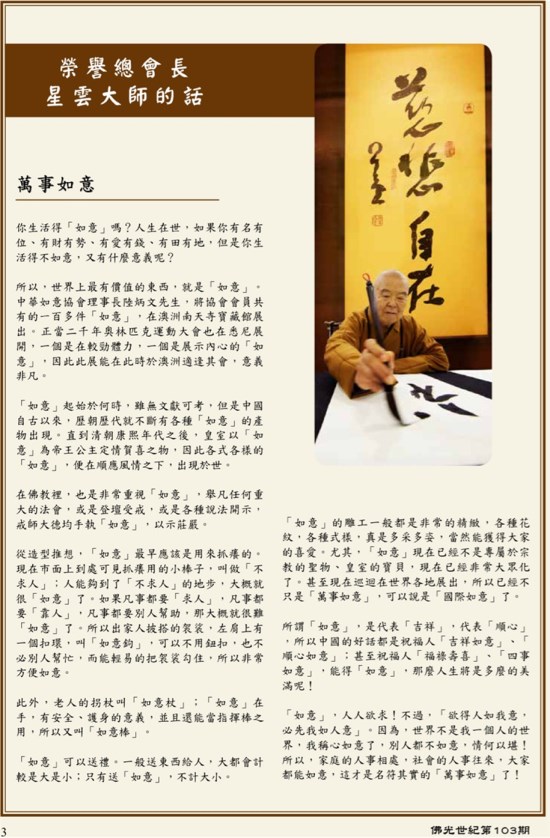 榮譽總會長
星雲大師的話
慈悲自在
萬事如意
你生活得「如意」嗎？人生在世，如果你有名有
位、有財有勢、有愛有錢、有田有地，但是你生
活得不如意，又有什麼意義呢？
所以，世界上最有價值的東西，就是「如意」。
中華如意協會理事長陸炳文先生，將協會會員共
有的一百多件「如意」，在澳洲南天寺寶藏館展
出。正當二千年奧林匹克運動大會也在悉尼展
開，一個是在較勁體力，一個是展示內心的「如
意」，因此此展能在此時於澳洲適逢其會，意義
非凡。
「如意」起始於何時，雖無文獻可考，但是中國
自古以來，歷朝歷代就不斷有各種「如意」的產
物出現。直到清朝康熙年代之後，皇室以「如
意」為帝王公主定情賀喜之物，因此各式各樣的
「如意」，便在順應風情之下，出現於世。
在佛教裡，也是非常重視「如意」，舉凡任何重
大的法會，或是登壇受戒，或是各種說法開示，
戒師大德均手執「如意」，以示莊嚴。
從造型推想，「如意」最早應該是用來抓癢的。
現在市面上到處可見抓癢用的小棒子，叫做「不
求人」；人能夠到了「不求人」的地步，大概就
很「如意」了。如果凡事都要「求人」，凡事都
要「靠人」，凡事都要別人幫助，那大概就很難
「如意」了。所以出家人披搭的袈裟，左肩上有
一個扣環，叫「如意鉤」，可以不用鈕扣，也不
必別人幫忙，而能輕易的把袈裟勾住，所以非常
方便如意。
此外，老人的拐杖叫「如意杖」；「如意」在
手，有安全、護身的意義，並且還能當指揮棒之
用，所以又叫「如意棒」。
「如意」可以送禮。一般送東西給人，大都會計
較是大是小；只有送「如意」，不計大小。
「如意」的雕工一般都是非常的精緻，各種花
紋，各種式樣，真是多采多姿，當然能獲得大家
的喜愛。尤其，「如意」現在已經不是專屬於宗
教的聖物、皇室的寶貝，現在已經非常大眾化
了。甚至現在巡迴在世界各地展出，所以已經不
只是「萬事如意」，可以說是「國際如意」了。
所謂「如意」，是代表「吉祥」，代表「順心」
，所以中國的好話都是祝福人「吉祥如意」、「
順心如意」；甚至祝福人「福祿壽喜」、「四事
如意」，能得「如意」，那麼人生將是多麼的美
滿呢！
「如意」，人人欲求！不過，「欲得人如我意，
必先我如人意」。因為，世界不是我一個人的世
界，我稱心如意了，別人都不如意，情何以堪！
所以，家庭的人事相處，社會的人事往來，大家
都能如意，這才是名符其實的「萬事如意」了！
3
佛光世紀第103期